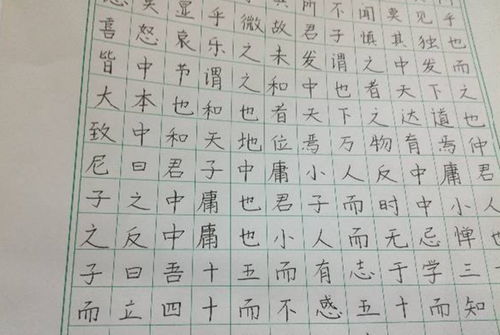 所不闻莫见乎
莫显乎微故君子慎其独也
喜怒哀乐之未发谓之中发而
皆中节谓之和中也者天下之
大本也和也者天下之达道也
致中和天地位焉万物育焉仲
尼曰君子中庸小人反中庸君
子之中庸也君子而时中小人
之反中庸也小人而无忌惮也
子曰吾十五而有志于学三
而立四十而不感五十而知